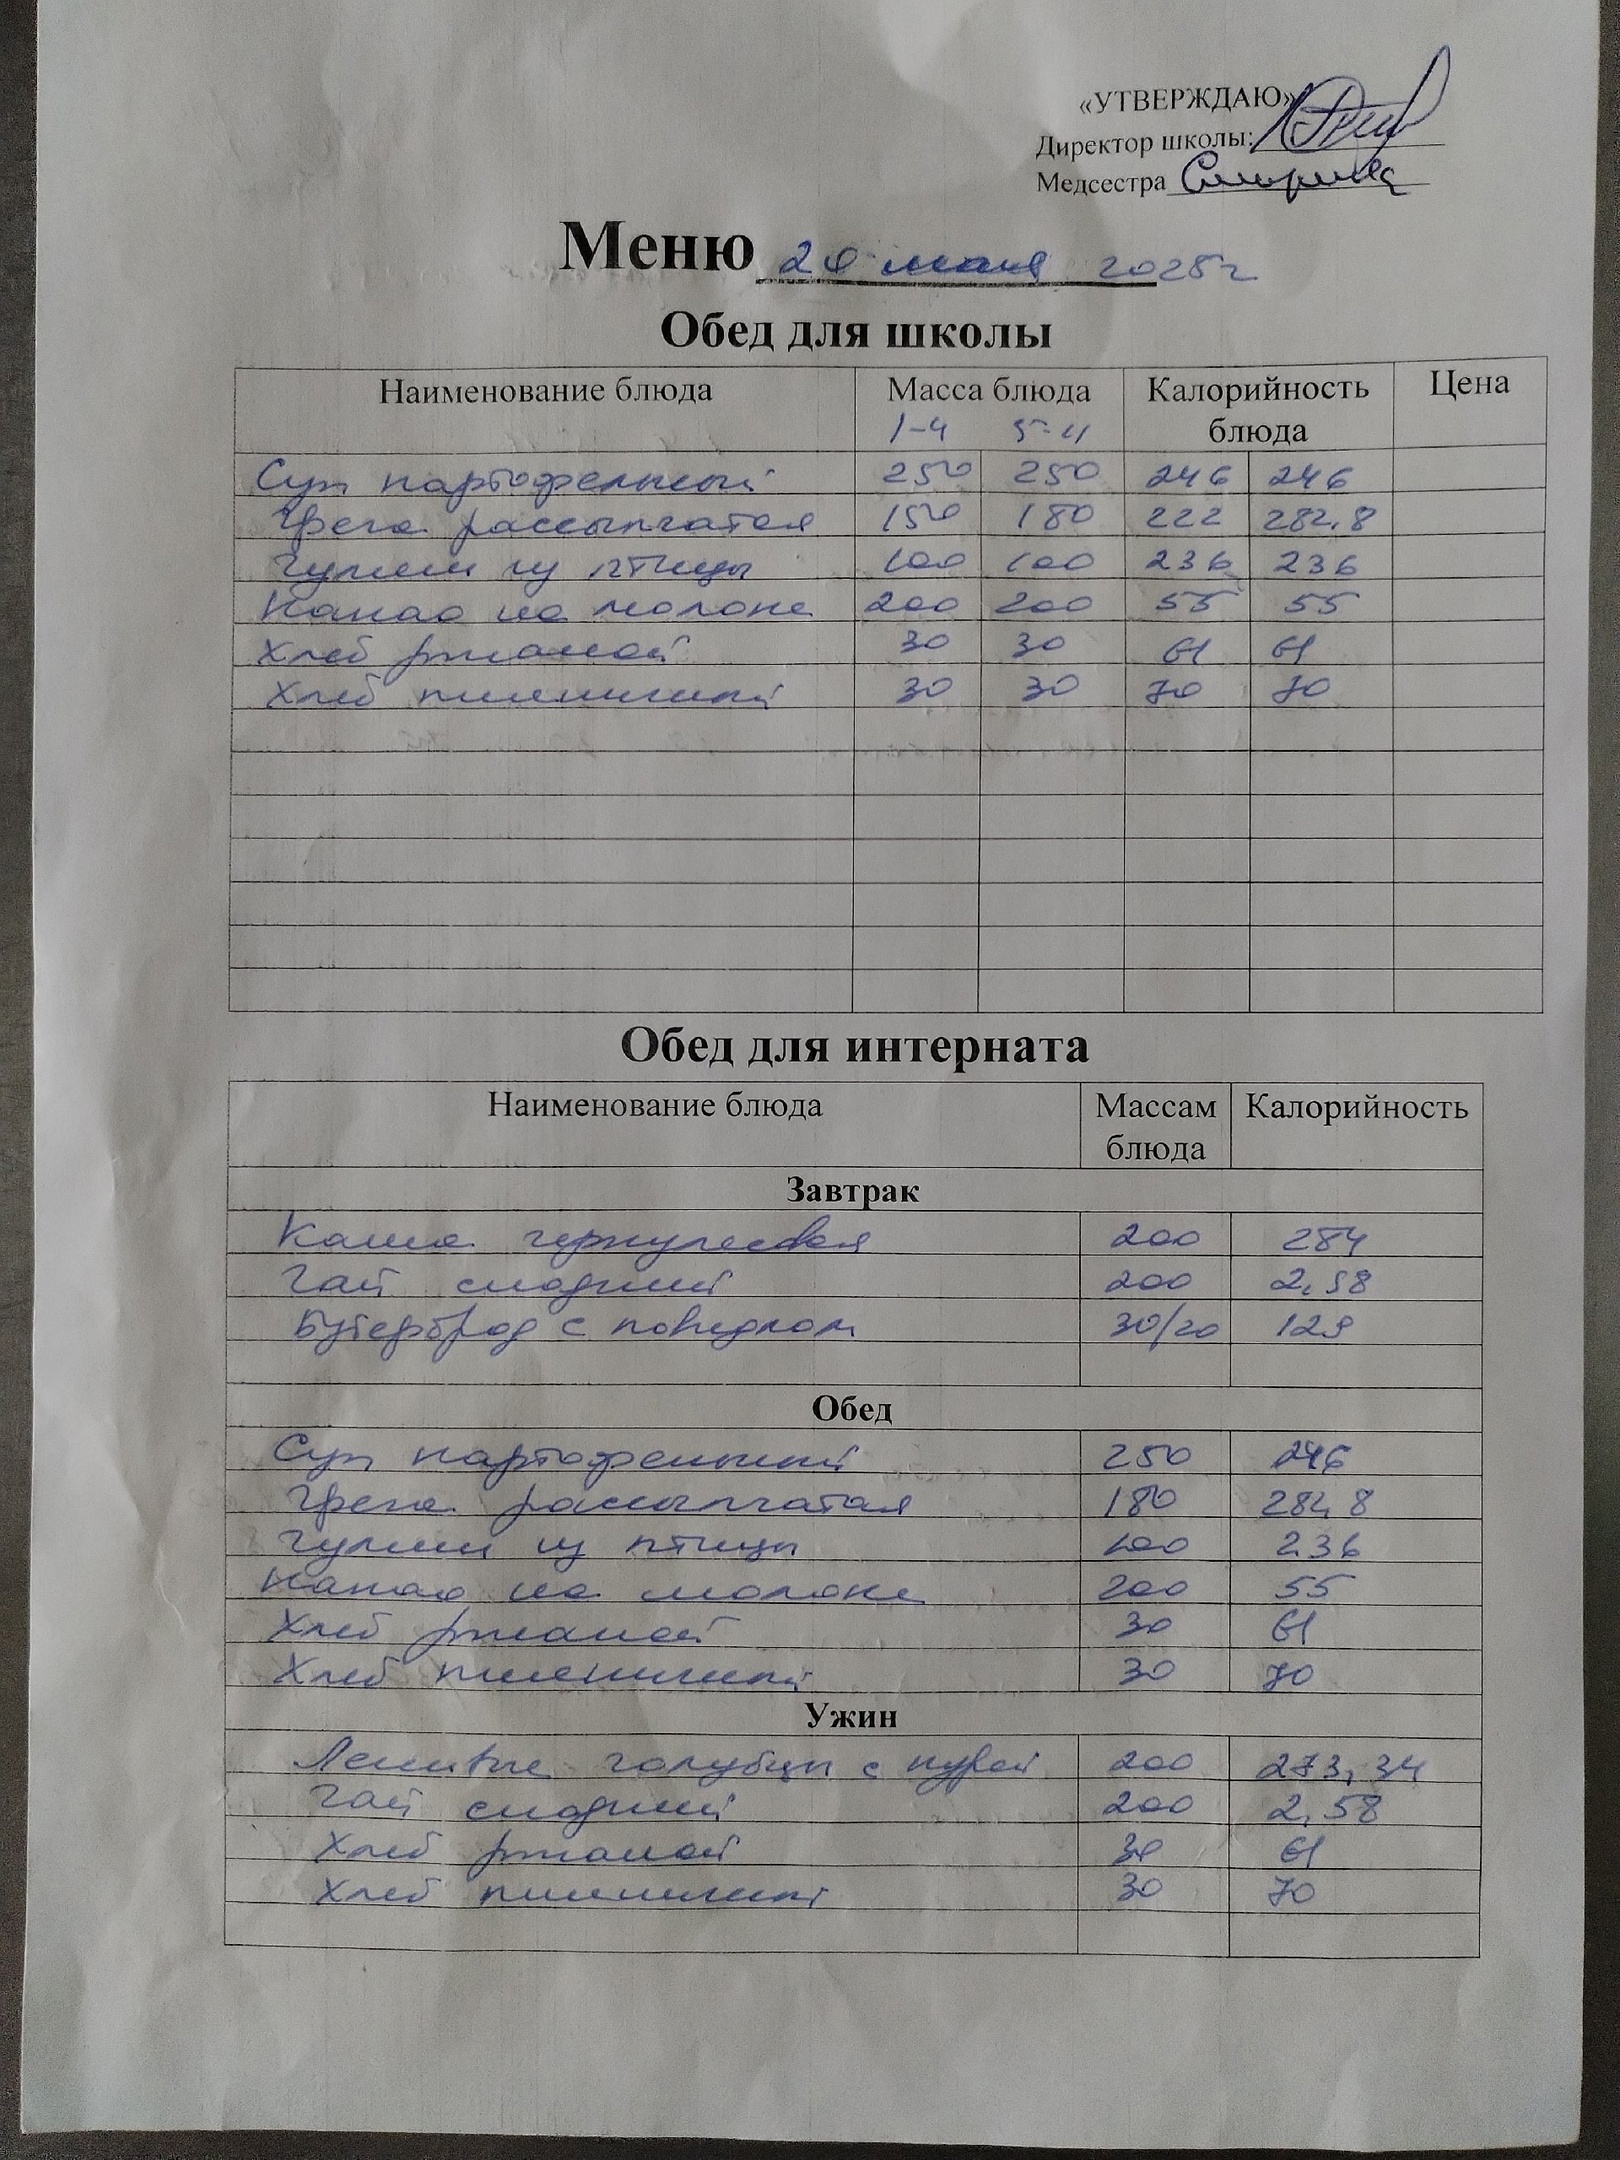 «УТВЕРЖДАЮ»
Директор школы:
Медсестра
Меню 20 мая 2025г
Обед для школы
Наименование блюда Масса блюда Калорийность блюда Цена
1-4 5-11
Суп картофельный 250 250 246 246
Греча рассыпчатая 150 180 222 282,8
Гуляш из птицы 100 100 236 236
Какао на молоке 200 200 55 55
Хлеб ржаной 30 30 61 61
Хлеб пшеничный 30 30 70 70
Обед для интерната
Наименование блюда Массам блюда Калорийность
Завтрак
Каша геркулесовая 200 284
Чай сладкий 200 2,58
Бутерброд с повидлом 30/20 129
Обед
Суп картофельный 250 246
Греча рассыпчатая 180 282,8
Гуляш из птицы 100 236
Какао на молоке 200 55
Хлеб ржаной 30 61
Хлеб пшеничный 30 70
Ужин
Ленивые голубцы с курой 200 273,34
Чай сладкий 200 2,58
Хлеб ржаной 30 61
Хлеб пшеничный 30 70